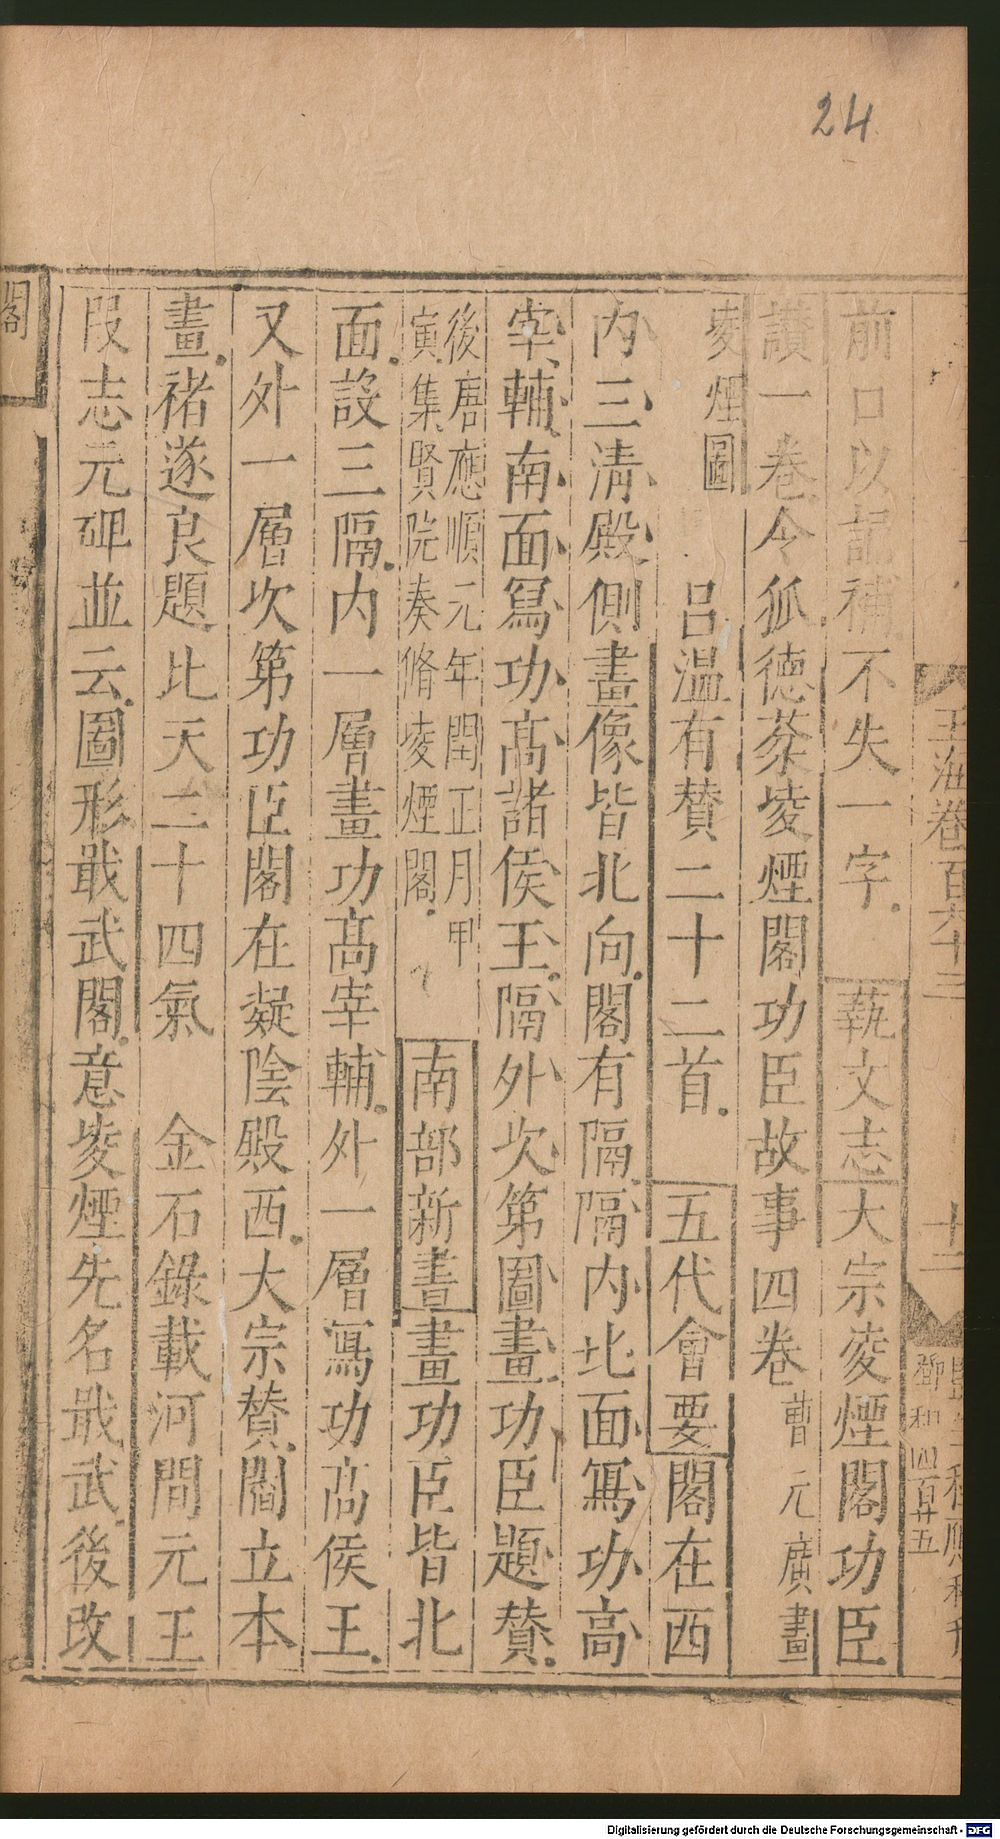 24
玉海卷百六十三
十二
鄧和四百廿五
前口以記補不失一字執文志大宗凌煙閣功臣
讃一卷令狐德棻凌煙閣功臣故事四卷曹元廣畫
凌煙圖
呂温有賛二十二首五代會要閣在西
内三清殿側畫像皆北向閣有隔隔内北面寫功高
宰輔南面寫功高諸侯王隔外次第圖畫功臣題賛
後唐應順元年閏正月甲
寅集賢院奏脩凌煙閣
南部新書畫功臣皆北
面設三隔内一層畫功高宰輔外一層寫功高侯王
又外一層次第功臣閣在凝陰殿西大宗賛閻立本
畫褚遂良題比天二十四氣金石錄載河間元王
段志元碑並云圖形戢武閣意凌煙先名戢武後改
閣
Digitalisierung gefördert durch die Deutsche Forschungsgemeinschaft - DFG